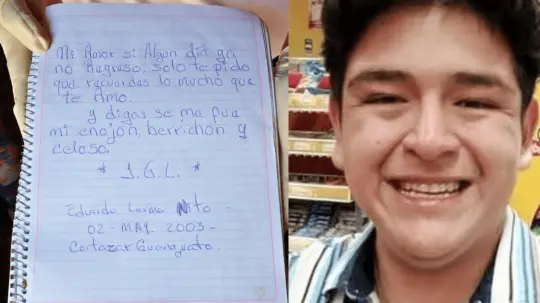 Mi Amor si Algún día ya
no Regreso, solo te pido
que recuerdes lo mucho que
te Amo.
y digas se me fue
mi enojón, berrichon y
celoso.
* J.G.L. *
Eduardo Nito -
02 - MAY. 2003 -
Cortazar Guanajuato.